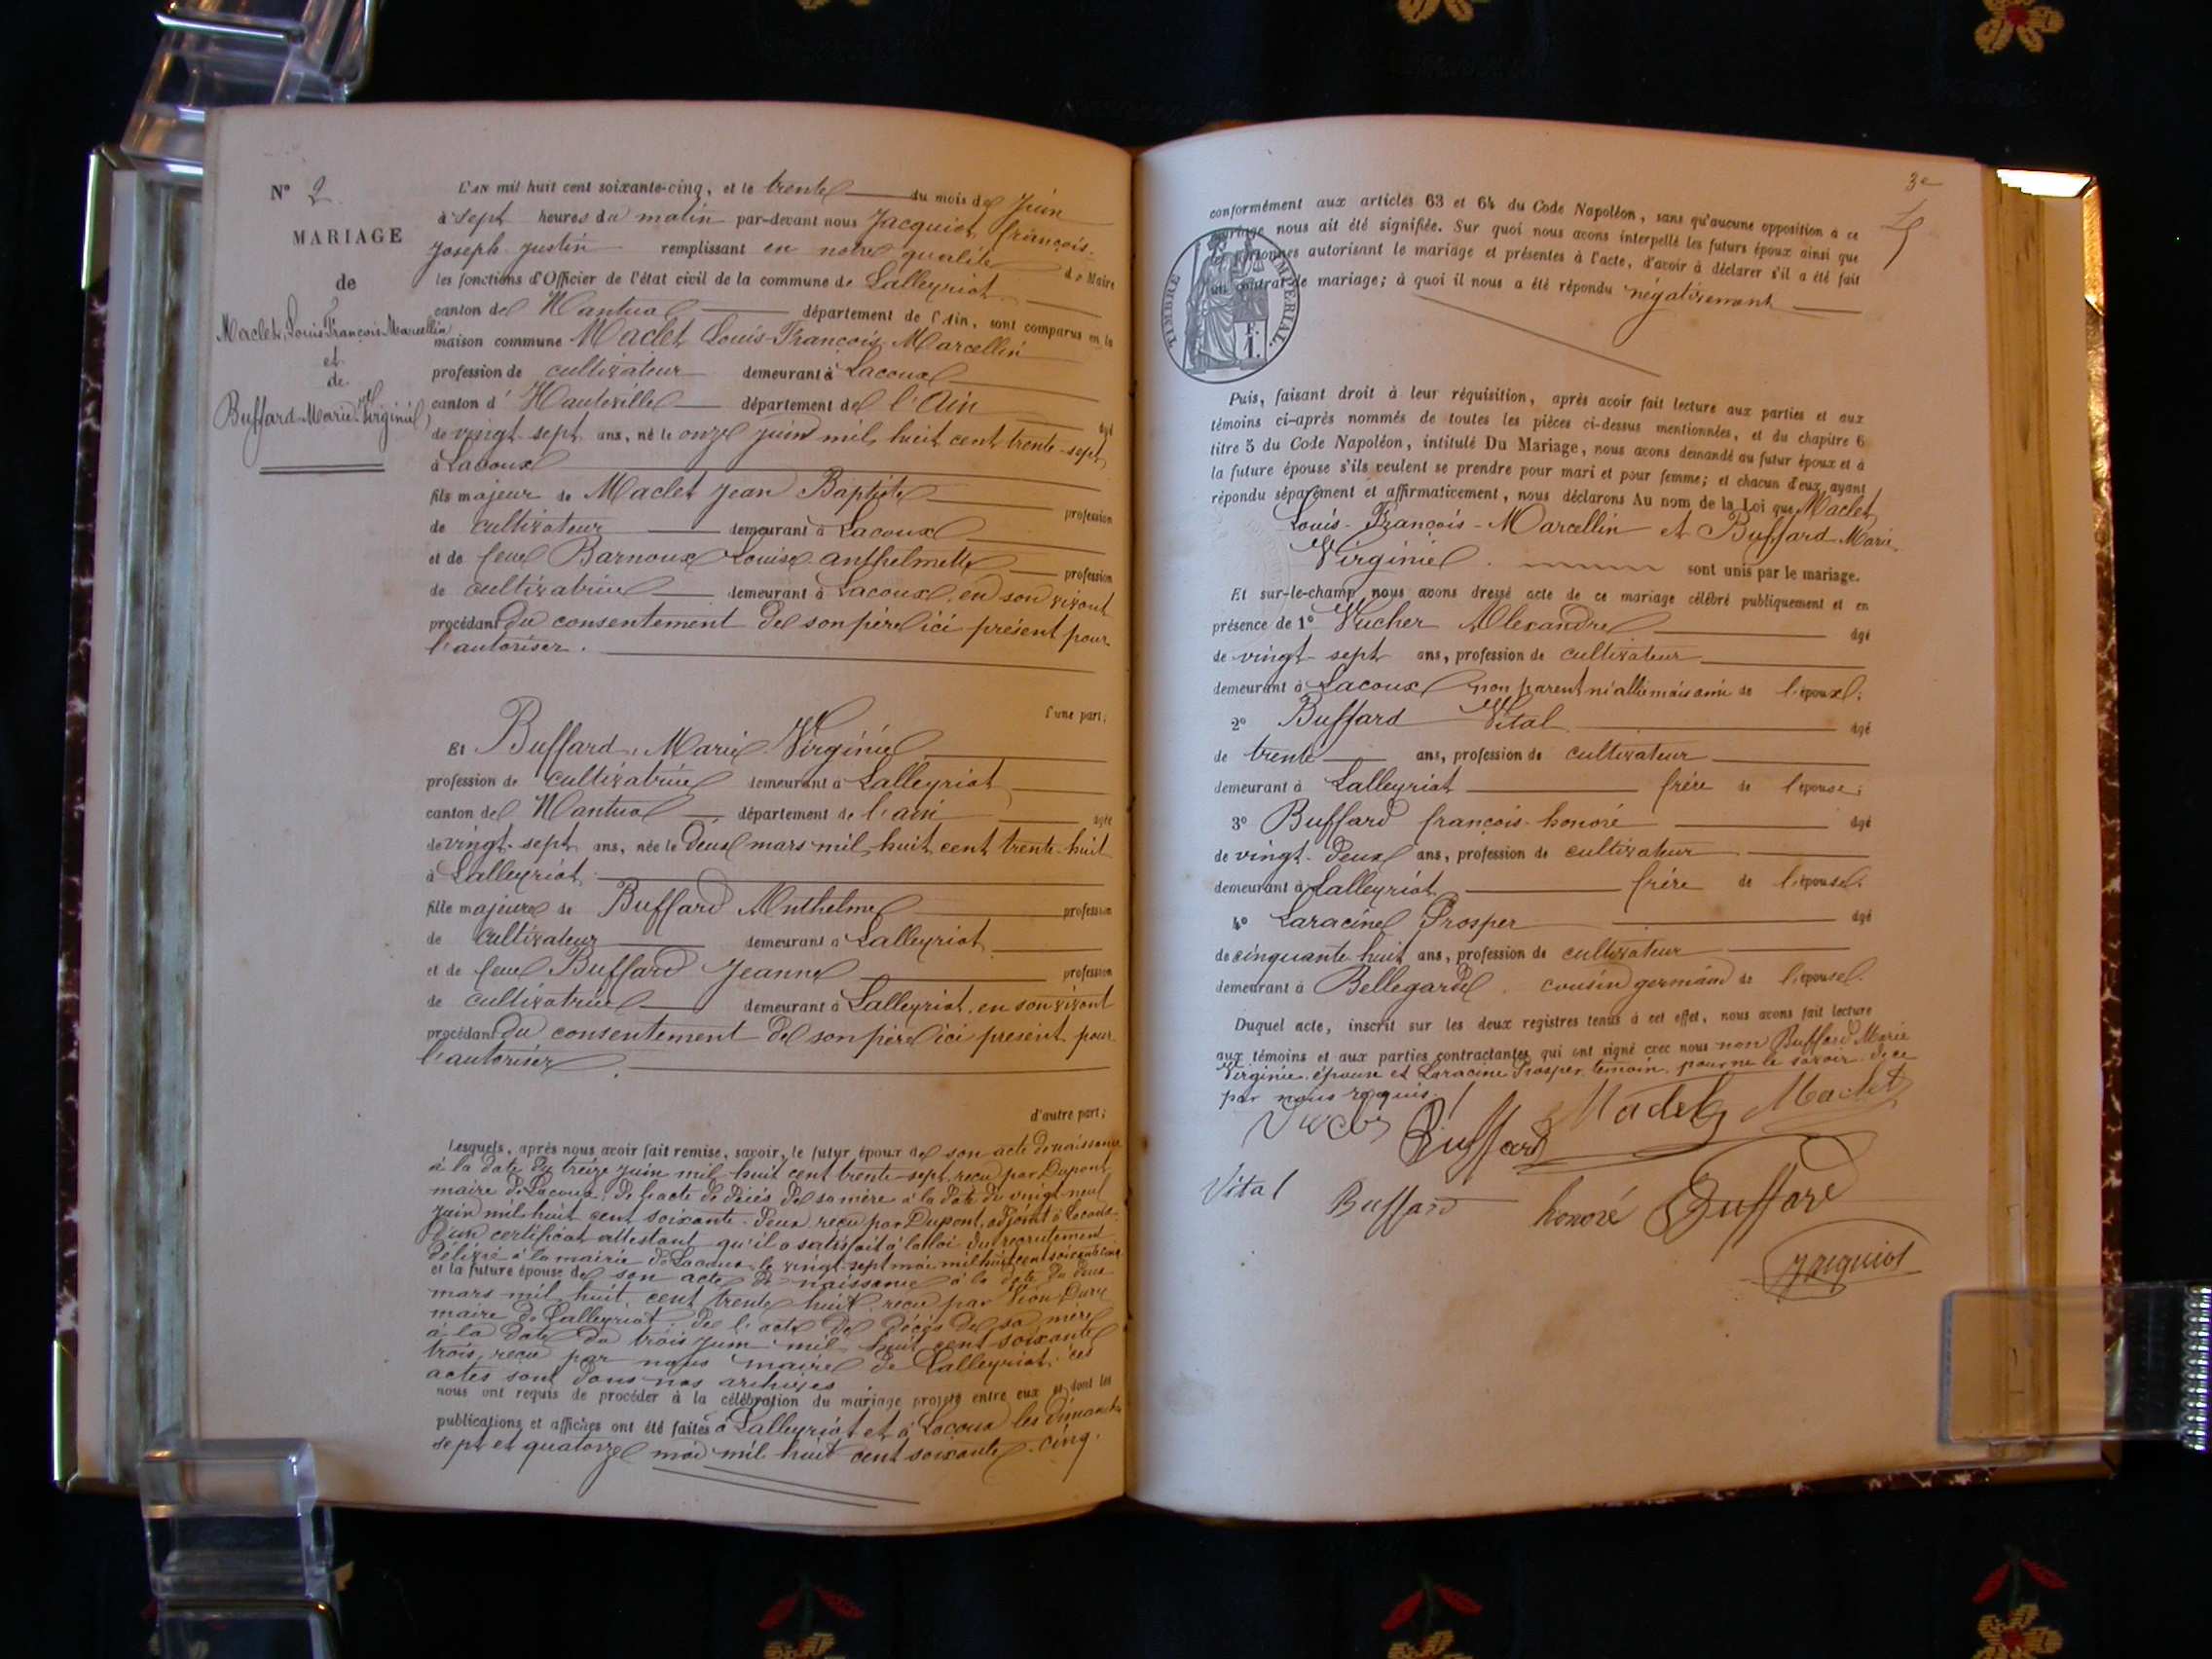 N° 2
MARIAGE
de
Maclet, Louis François Marcellin
et
de
Buffard Marie Virginie
L'AN mil huit cent soixante-cinq, et le trente du mois de Juin
à sept heures du matin par-devant nous Jacquiot, françois-
Joseph-Justin remplissant en notre qualité de Maire
les fonctions d'Officier de l'état civil de la commune de Lalleyriat
canton de Nantua département de l'Ain, sont comparus en la
maison commune Maclet Louis-François-Marcellin
profession de cultivateur demeurant à Lacoux
canton d' Hauteville département de l'Ain âgé
de vingt-sept ans, né le onze juin mil huit cent trente-sept
à Lacoux
fils majeur de Maclet Jean Baptiste profession
de cultivateur demeurant à Lacoux
et de feue Barnoux Louise anthelmette profession
de cultivatrice demeurant à Lacoux, en son vivant
procédant du consentement de son père ici présent pour
l'autoriser.
d'une part;
Et Buffard, Marie Virginie
profession de cultivatrice demeurant à Lalleyriat
canton de Nantua département de l'ain âgée
de vingt-sept ans, née le deux mars mil huit cent trente-huit
à Lalleyriat
fille majeure de Buffard Anthelme profession
de cultivateur demeurant à Lalleyriat
et de feue Buffard Jeanne profession
de cultivatrice demeurant à Lalleyriat, en son vivant
procédant du consentement de son père ici présent pour
l'autoriser
d'autre part;
Lesquels, après nous avoir fait remise, savoir, le futur époux de son acte de naissance
à la date du treize juin mil huit cent trente-sept reçu par Dupont
maire de Lacoux, de l'acte de décès de sa mère à la date du vingt-neuf
juin mil huit cent soixante-deux reçu par Dupont, adjoint à Lacoux.
D'un certificat attestant qu'il a satisfait à la loi du recrutement
délivré à la mairie de Lacoux le vingt-sept mai mil huit cent soixante cinq
et la future épouse de son acte de naissance à la date du deux
mars mil huit cent trente huit reçu par Vion-Dury
maire de Lalleyriat, de l'acte de décès de sa mère
à la date du trois juin mil huit cent soixante
trois, reçu par nous maire de Lalleyriat, ces
actes sont dans nos archives
nous ont requis de procéder à la célébration du mariage projeté entre eux et dont les
publications et affiches ont été faites à Lalleyriat et à Lacoux les dimanches
sept et quatorze mai mil huit cent soixante-cinq.
3e
conformément aux articles 63 et 64 du Code Napoléon, sans qu'aucune opposition à ce
mariage nous ait été signifiée. Sur quoi nous avons interpellé les futurs époux ainsi que
les personnes autorisant le mariage et présentes à l'acte, d'avoir à déclarer s'il a été fait
un contrat de mariage; à quoi il nous a été répondu négativement
TIMBRE IMPÉRIAL.
Puis, faisant droit à leur réquisition, après avoir fait lecture aux parties et aux
témoins ci-après nommés de toutes les pièces ci-dessus mentionnées, et du chapitre 6
titre 5 du Code Napoléon, intitulé Du Mariage, nous avons demandé au futur époux et à
la future épouse s'ils veulent se prendre pour mari et pour femme; et chacun d'eux ayant
répondu séparément et affirmativement, nous déclarons Au nom de la Loi que Maclet
Louis-François-Marcellin et Buffard Marie
Virginie sont unis par le mariage.
Et sur-le-champ nous avons dressé acte de ce mariage célébré publiquement et en
présence de 1° Vucher Alexandre âgé
de vingt-sept ans, profession de cultivateur
demeurant à Lacoux non parent ni allié mais ami de l'époux;
2° Buffard Vital âgé
de trente ans, profession de cultivateur
demeurant à Lalleyriat frère de l'épouse;
3° Buffard françois-honoré âgé
de vingt-deux ans, profession de cultivateur
demeurant à Lalleyriat frère de l'épouse;
4° Laracine Prosper âgé
de cinquante huit ans, profession de cultivateur
demeurant à Bellegarde, cousin germain de l'épouse.
Duquel acte, inscrit sur les deux registres tenus à cet effet, nous avons fait lecture
aux témoins et aux parties contractantes qui ont signé avec nous non Buffard Marie
Virginie épouse et Laracine Prosper témoin pour ne le savoir de ce
par nous requis.
Buffard Maclet Maclet
Vital Buffard honoré Buffard
Jacquiot